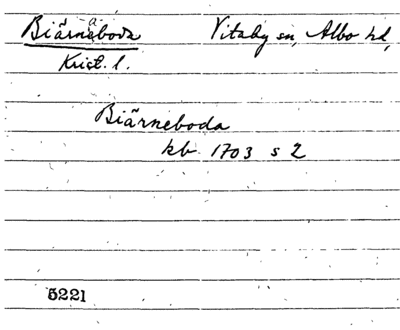 Biärnaboda Vitaby sn, Albo hd,
Krist. l.
Biärneboda
kb 1703 s 2
5221